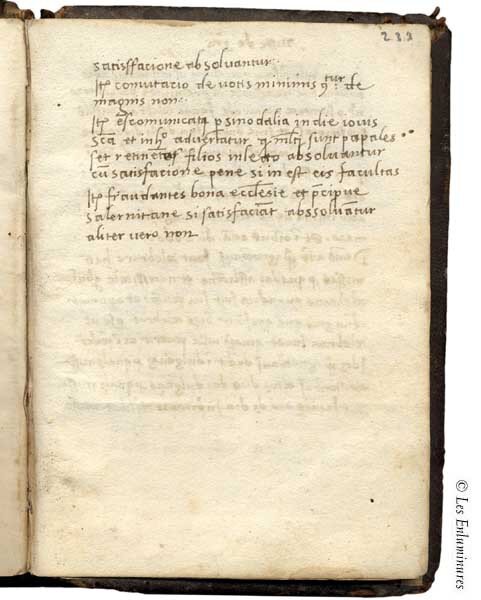 satisffacione absolvantur·
Itẽ comutacio de votis minimis ꝯ͏ᵗᵘʳ: de
magnis non·
Itẽ excomunicatj p sinodalia in die iovis
sctã et in hͦ advertatur q mltj sunt papales
set retinetes filios in lecto absolvantur
cũ satisfacione pene si in est eis facultas
Itẽ fraudantes bona ecclesie et pcipue
salernitane si satisfaciãt abssolvãtur
aliter vero non
© Les Enluminures